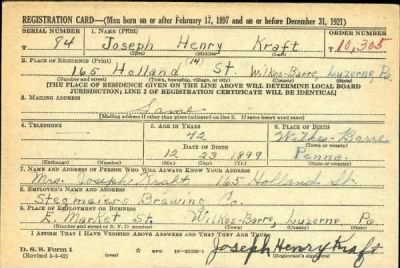 REGISTRATION CARD—(Men born on or after February 17, 1897 and on or before December 31, 1921)
SERIAL NUMBER 1. NAME (Print) ORDER NUMBER
94 Joseph Henry Kraft 10,305
(First) (Middle) (Last)
2. PLACE OF RESIDENCE (Print) (14)
165 Holland St. Wilkes-Barre, Luzerne Pa.
(Number and street) (Town, township, village, or city) (County) (State)
[THE PLACE OF RESIDENCE GIVEN ON THE LINE ABOVE WILL DETERMINE LOCAL BOARD
JURISDICTION; LINE 2 OF REGISTRATION CERTIFICATE WILL BE IDENTICAL]
3. MAILING ADDRESS
Same
[Mailing address if other than place indicated on line 2. If same insert word same]
4. TELEPHONE 5. AGE IN YEARS 6. PLACE OF BIRTH
42 Wilkes-Barre
DATE OF BIRTH (Town or county)
12 23 1899 Penna.
(Exchange) (Number) (Mo.) (Day) (Yr.) (State or country)
7. NAME AND ADDRESS OF PERSON WHO WILL ALWAYS KNOW YOUR ADDRESS
Mrs. Joseph Kraft 165 Holland St.
8. EMPLOYER'S NAME AND ADDRESS
Stegmaiers Brewing Co.
9. PLACE OF EMPLOYMENT OR BUSINESS
E. Market St. Wilkes-Barre, Luzerne Pa.
(Number and street or R. F. D. number) (Town) (County) (State)
I AFFIRM THAT I HAVE VERIFIED ABOVE ANSWERS AND THAT THEY ARE TRUE.
D. S. S. Form 1
(Revised 1-1-42) GPO Joseph Henry Kraft